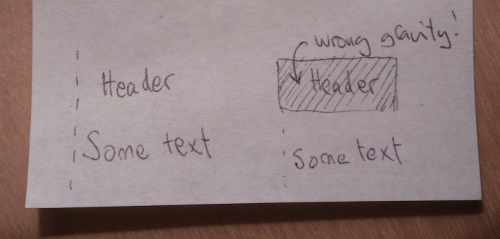 wrong gravity!
Header
Header
Some text
Some text